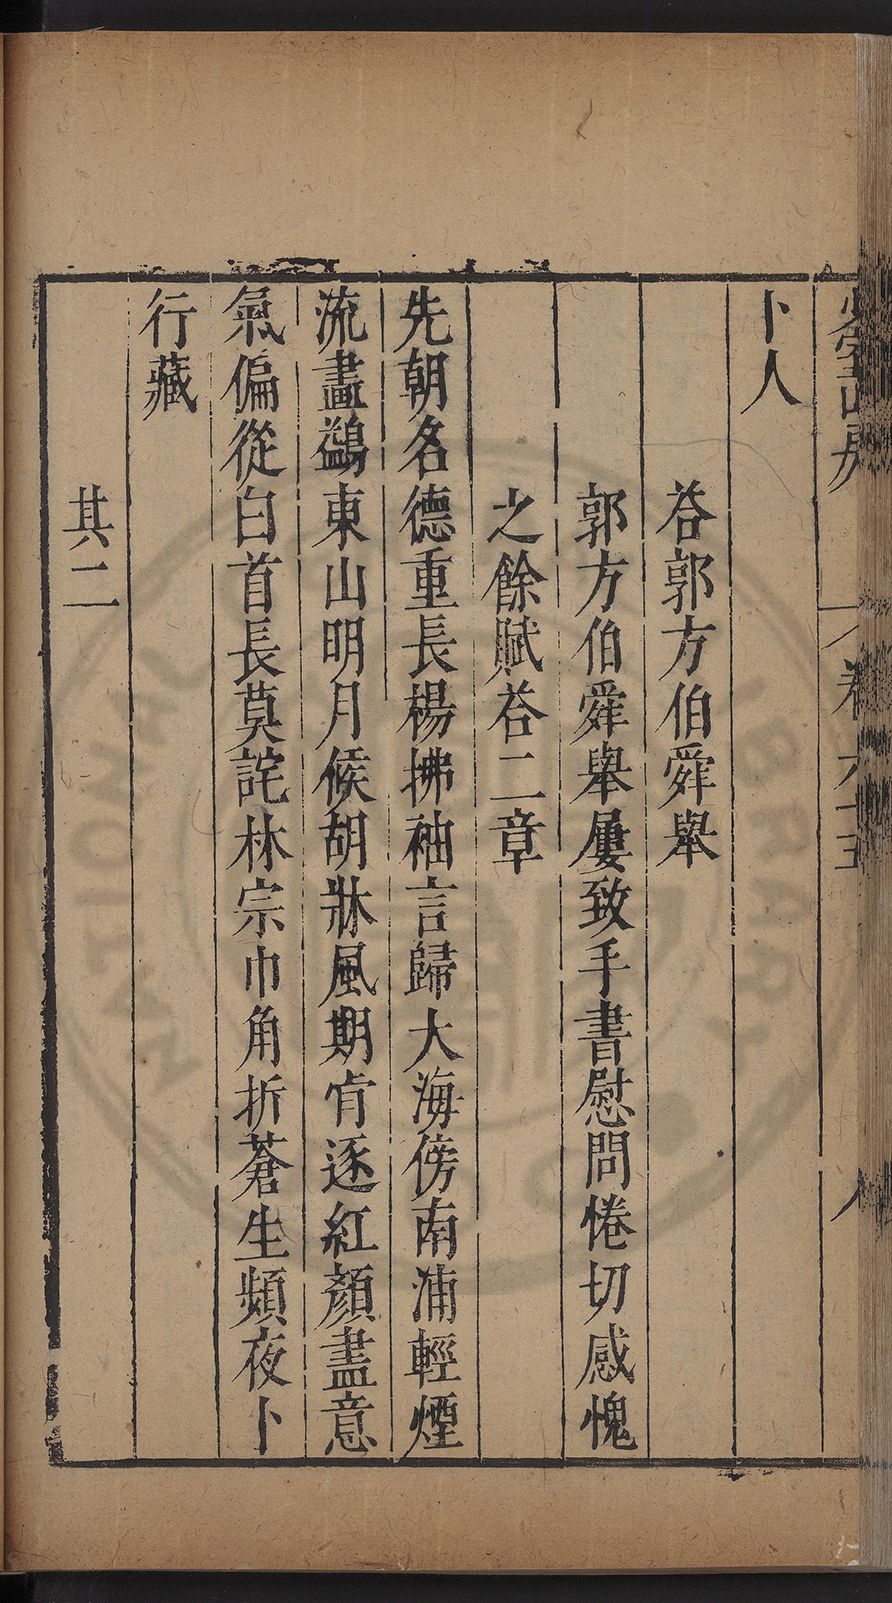 少室山房
卷六十五
八
卜人
荅郭方伯舜舉
郭方伯舜舉屢致手書慰問惓切感愧
之餘賦荅二章
先朝名德重長楊拂袖言歸大海傍南浦輕煙
流畫鷁東山明月候胡牀風期肯逐紅顏盡意
氣偏從白首長莫詫林宗巾角折蒼生頻夜卜
行藏
其二